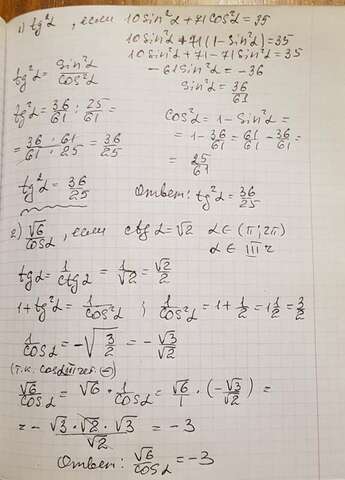 1) tg²α, если 10Sin²α + 71Cos²α = 35
10Sin²α + 71(1 - Sin²α) = 35
10Sin²α + 71 - 71Sin²α = 35
- 61Sin²α = - 36
Sin²α = 36/61
tg²α = Sin²α/Cos²α
Cos²α = 1 - Sin²α =
= 1 - 36/61 = 61/61 - 36/61 =
= 25/61
tg²α = 36/61 : 25/61 =
= 36 · 61/61 · 25 = 36/25
tg²α = 36/25
Ответ: tg²α = 36/25
2) √6/Cosα, если ctgα = √2 α ∈ (π; 2π)
α ∈ III ч
tgα = 1/ctgα = 1/√2 = √2/2
1 + tg²α = 1/Cos²α ; 1/Cos²α = 1 + 1/2 = 1 1/2 = 3/2
1/Cosα = -√(3/2) = - √3/√2
(т.к. cosα III чет. -)
√6/Cosα = √6 · 1/Cosα = √6/1 · (- √3/√2) =
= - √3 · √2 · √3/√2 = - 3
Ответ: √6/Cosα = - 3